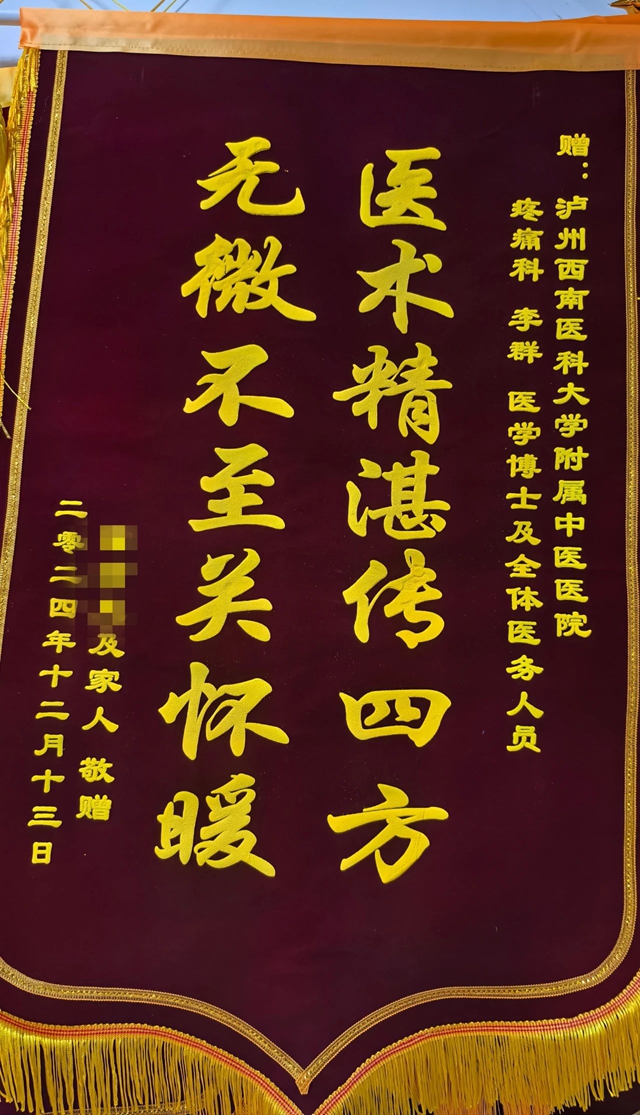 赠：泸州西南医科大学附属中医医院
疼痛科 李群 医学博士及全体医务人员
医术精湛传四方
无微不至关怀暖
及家人 敬赠
二零二四年十二月十三日